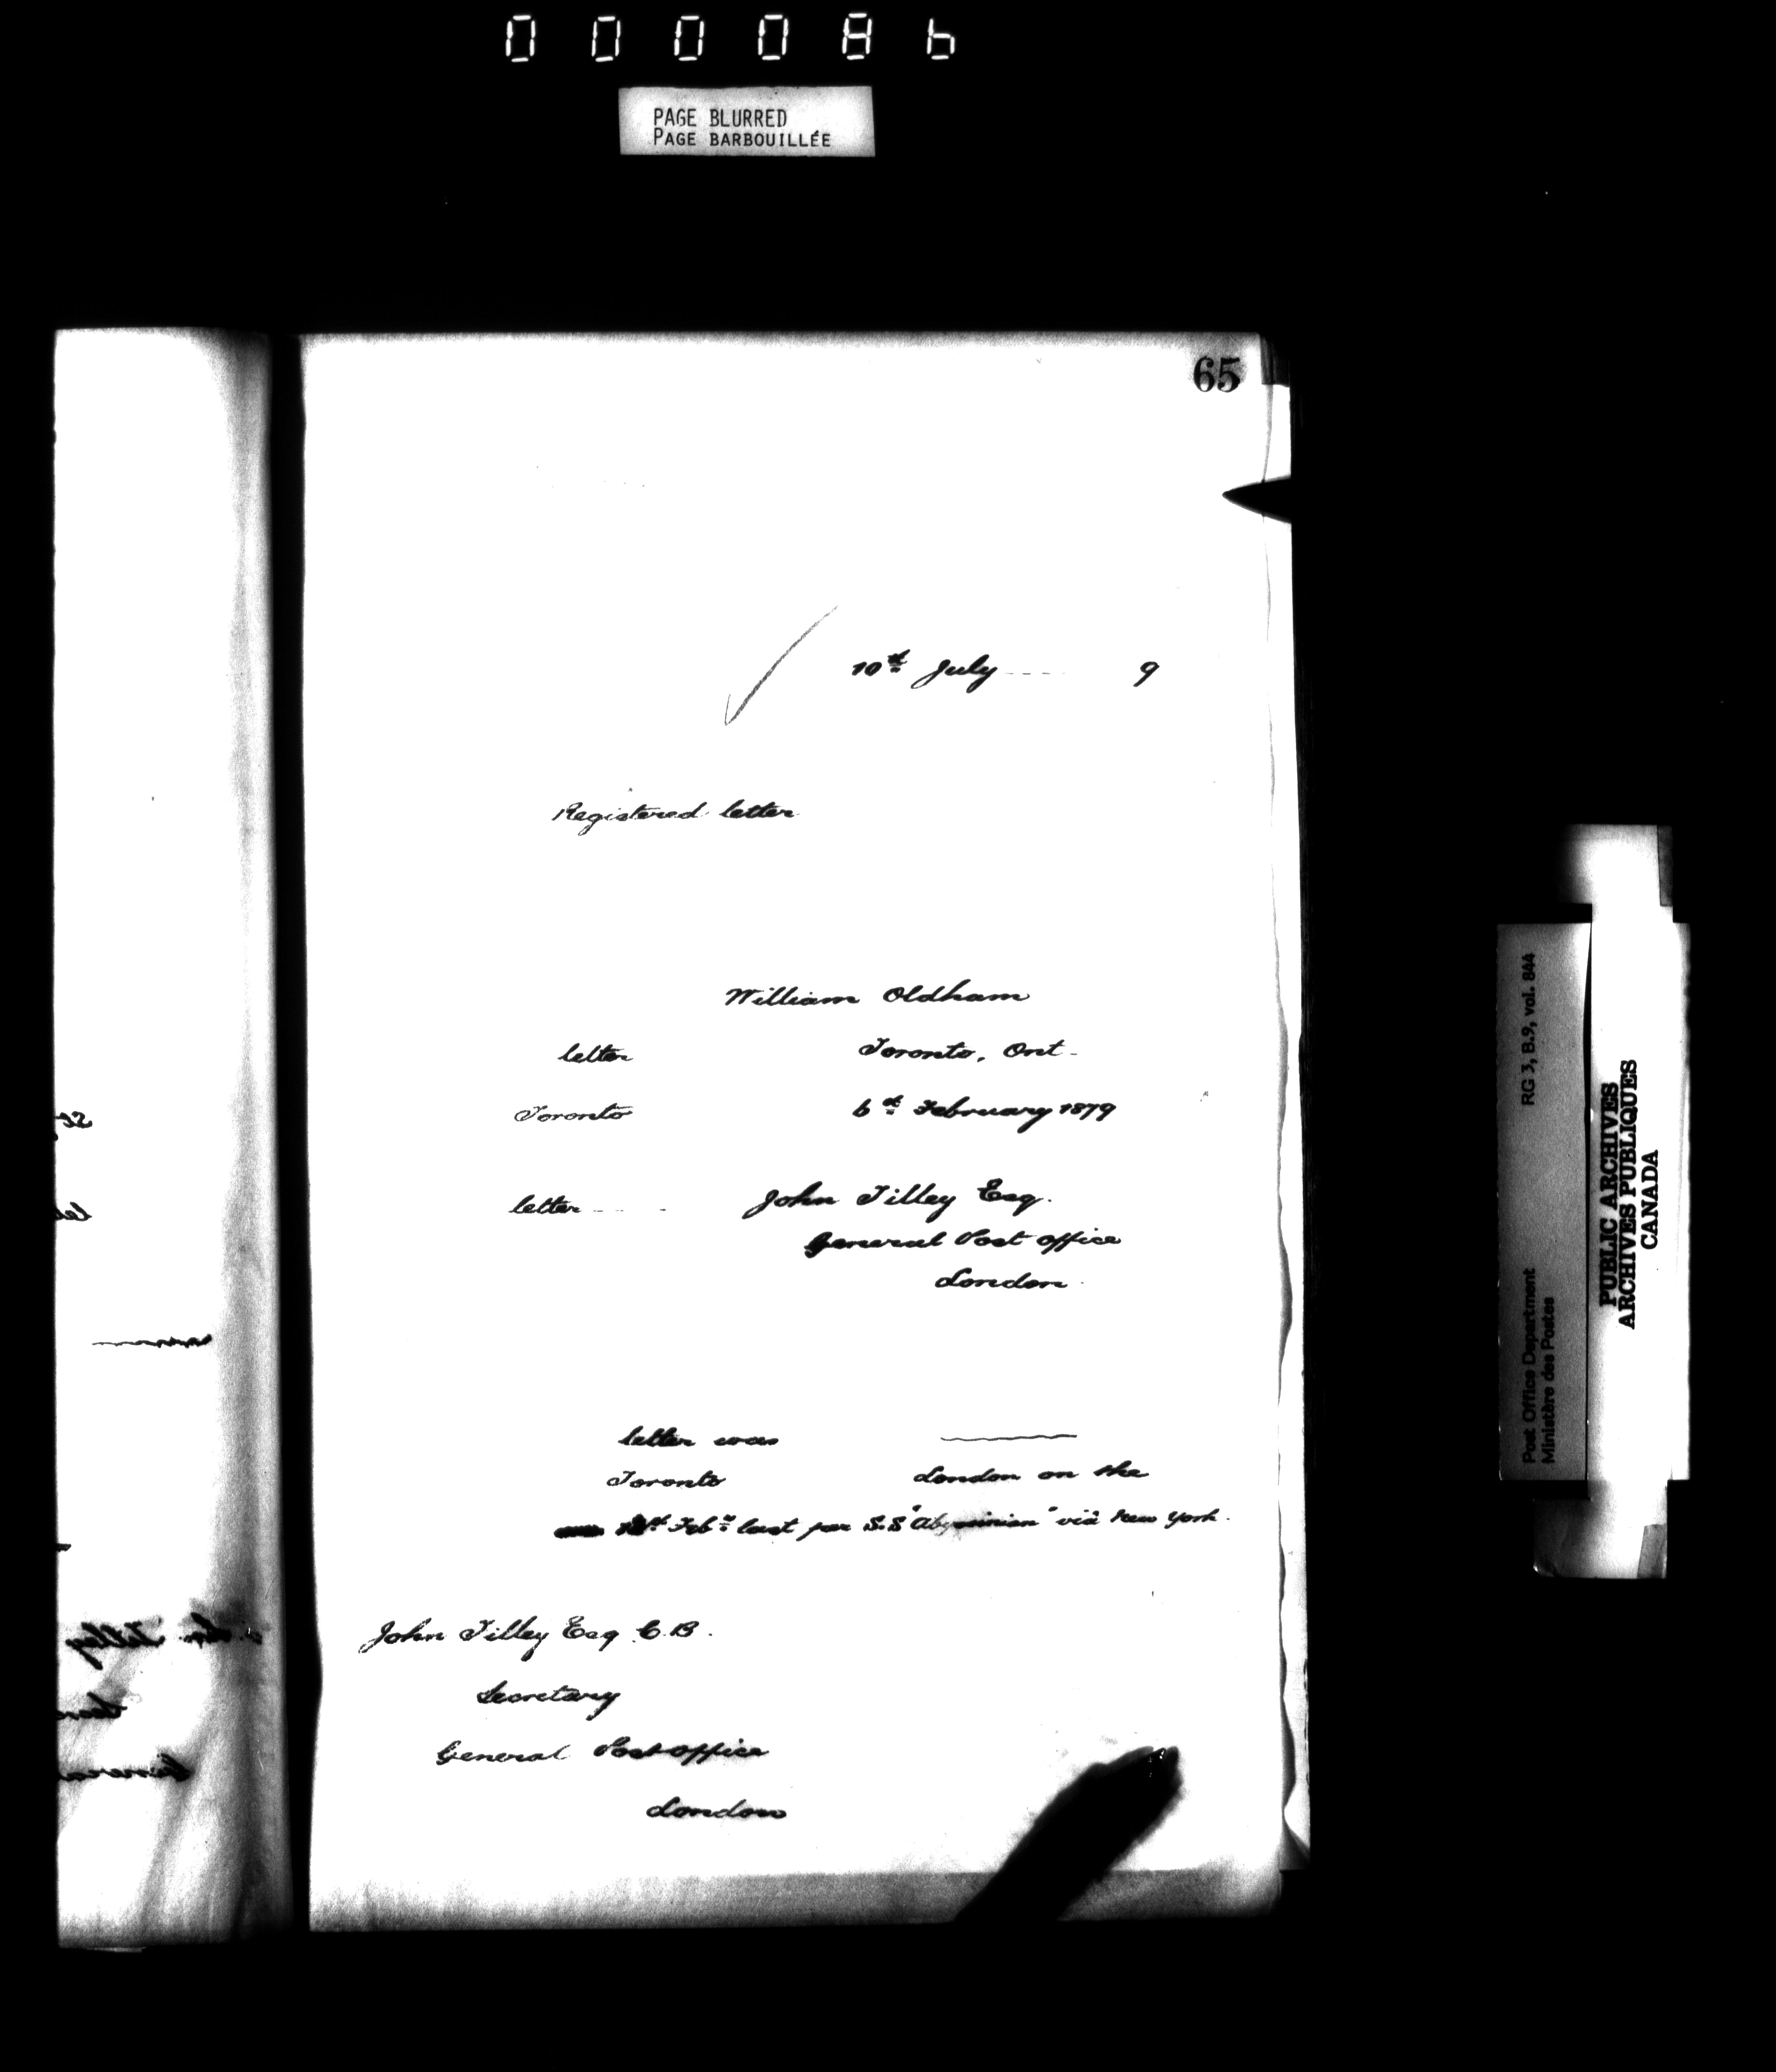 000086
PAGE BLURRED
PAGE BARBOUILLÉE
65
10th July ---- 9
Registered letter
William Oldham
letter Toronto, Ont-
Toronto 6th February 1879
letter --- John Tilley Esq.
General Post office
London
letter was
Toronto London on the
Feby last per S.S "Abyssinian" via New York.
John Tilley Esq C.B.
Secretary
General Post office
London
RG 3, B.9, vol. 844
Post Office Department
Ministère des Postes
PUBLIC ARCHIVES
ARCHIVES PUBLIQUES
CANADA